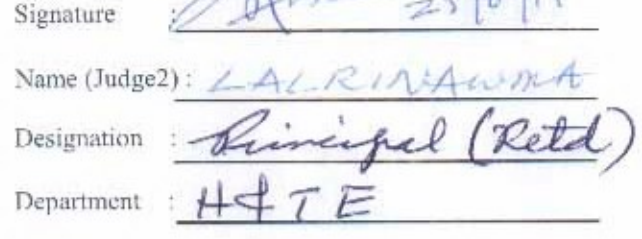 Signature :
Name (Judge2) : LALRINAWMA
Designation : Principal (Retd)
Department : H&TE